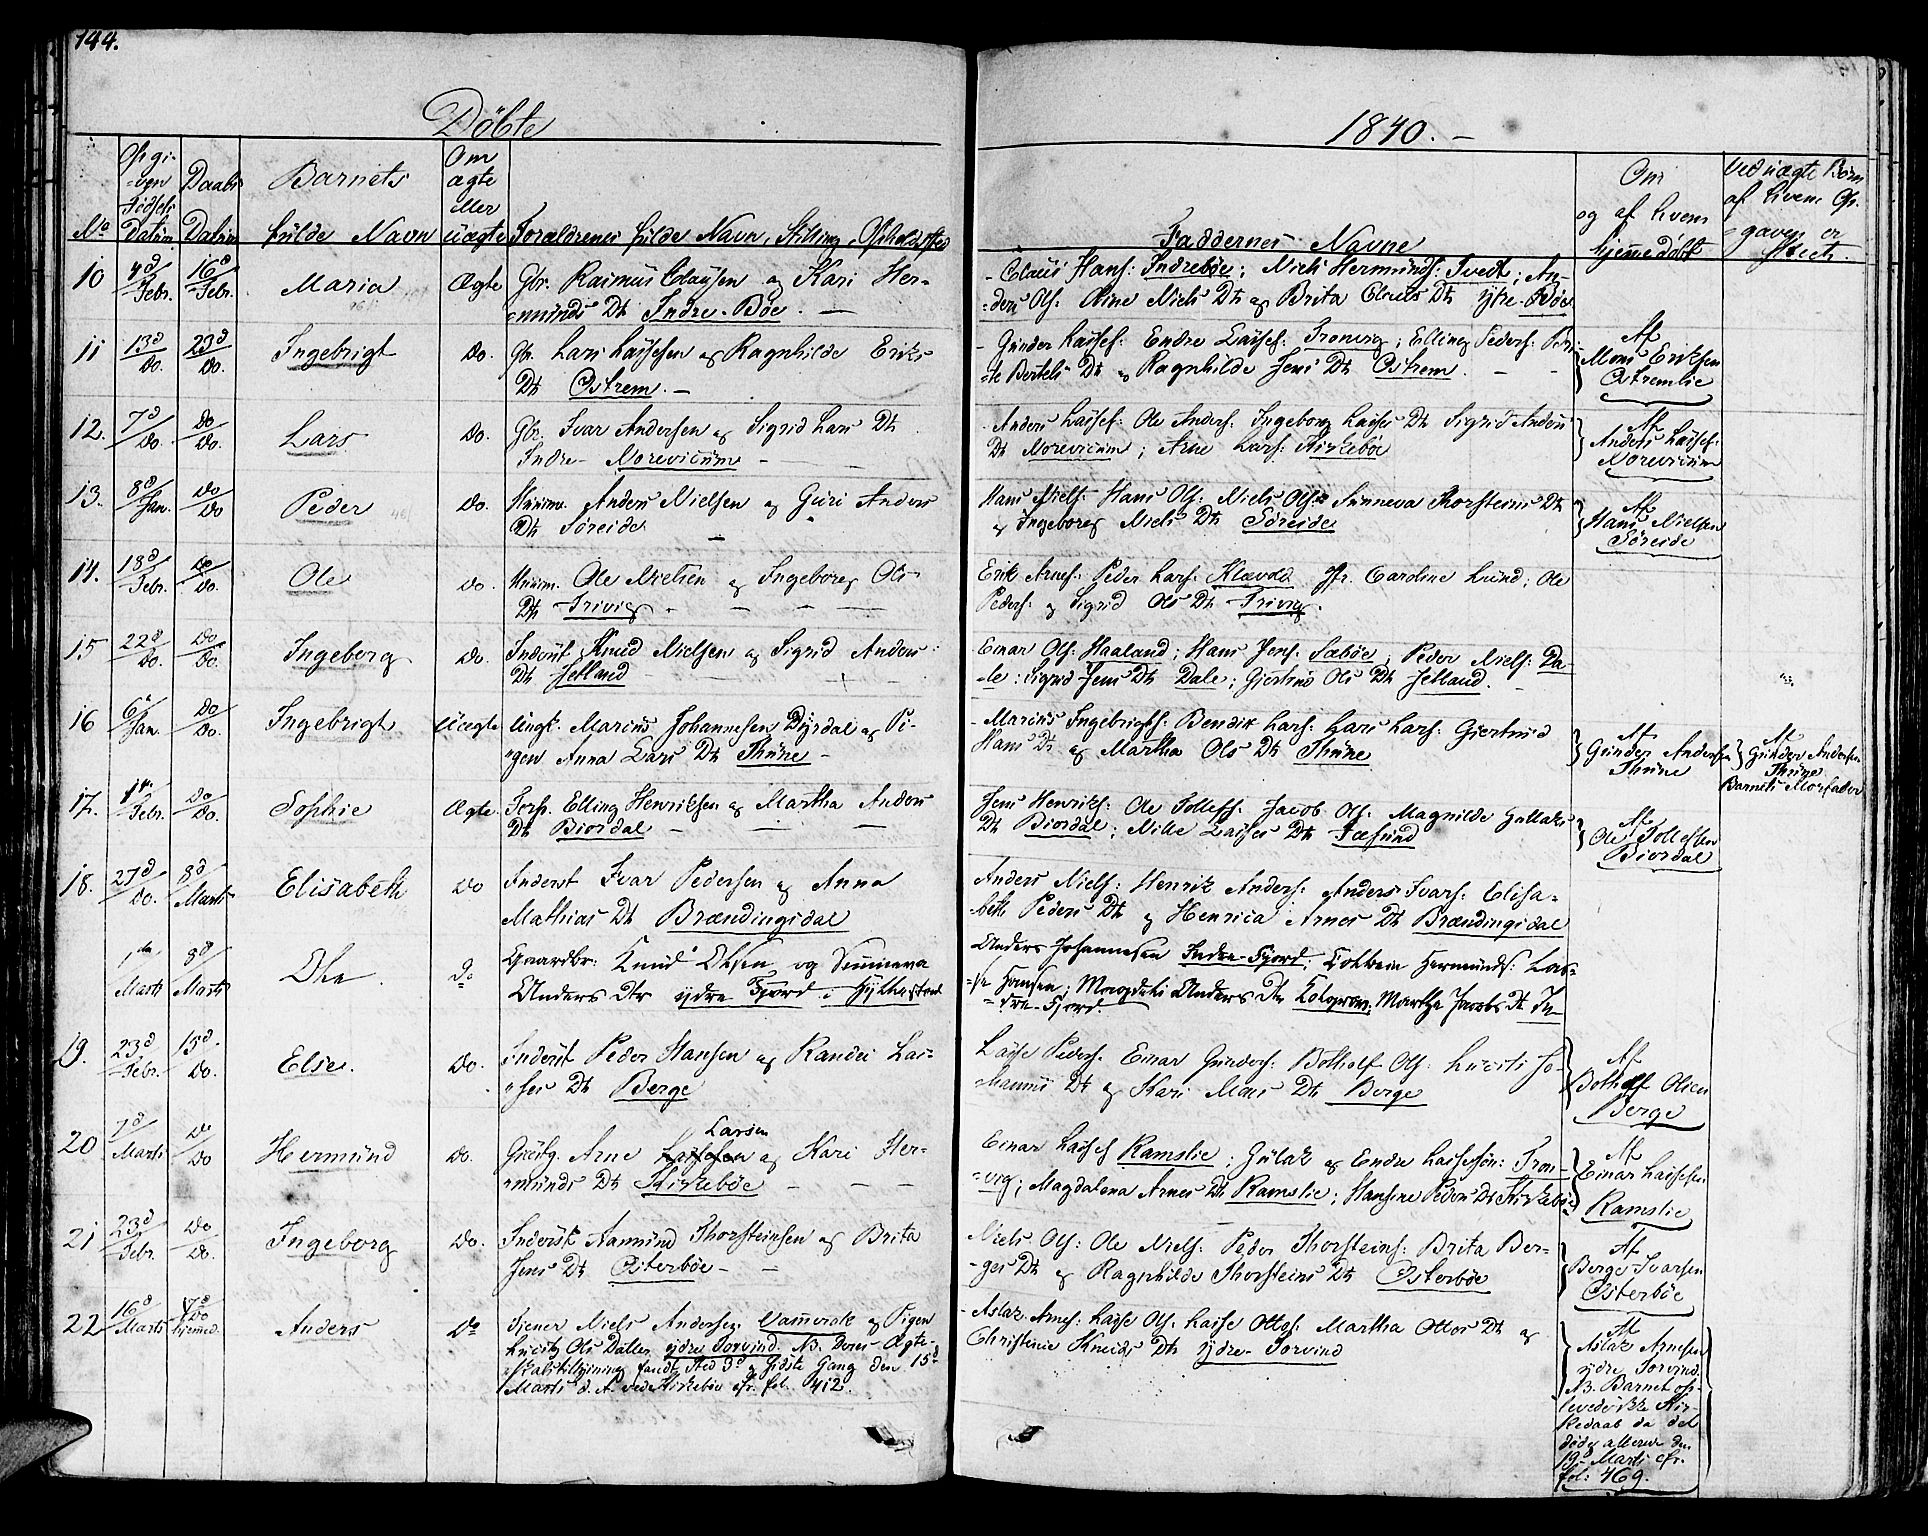 144.
Döbte
1840.
No
Opgi-
ven
Födsels
Datum
Daabs
Datum
Barnets
fulde Navn
Om
ægte
eller
uægte
Forældrenes fulde Navn, Stilling, Opholdssted
Faddernes Navne
Om
og af hvem
hjemmedöbt
Ved uægte Börn
af hvem Op-
gaven er
skeet.
10 4d/Febr. 16d/Febr. Maria Ægte Gbr. Rasmus Claysen og Kari Her-
munds Dt Indre-Böe.
Claus Hans: Indreböe; Niels Hermunds: Tvedt; An-
ders Ols: Anne Niels Dt og Brita Claus Dt ytre-Böe
11 13d/Do. 23d/Do. Ingebrigt Do. Gbr. Lars Lassesen og Ragnhilde Eriks
Dt Ostrem.
Gunder Lasses: Endre Lasses: Tronvig; Elling Peders: Bri-
te Bertels Dt og Ragnhilde Jens Dt Ostrem.
Af
Mons Eriksen
Ostremlie
12. 7d/Do. Do/Do. Lars Do. Gbr. Ivar Andersen og Sigrid Lars Dt
Indre-Morevicum
Anders Lasses: Ole Anders: Ingeborg Lasses Dt Sigrid Anders
Dt Morevicum; Arne Lars: Kirkeböe
Af
Anders Lasses:
Morevicum
13. 8d/Jan. Do/Do Peder Do. Huusm. Anders Nielsen og Guri Anders
Dt Söreide
Hans Niels: Hans Ols: Niels Ols: Sünneva Thorsteins Dt
og Ingeborg Niels Dt Söreide
Af
Hans Nielsen
Söreide
14. 18d/Febr. Do/Do. Ole Do. Huusm. Ole Nielsen og Ingeborg Ols
Dt Trivig
Erik Arnes: Peder Lars: Klævold Jfr. Caroline Lund; Ole
Peders: og Sigrid Ols Dt Trivig.
15 22d/Do. Do/Do. Ingeborg Do. Inderst Knud Nielsen og Sigrid Anders
Dt Hetland
Einar Ols: Haaland; Hans Jens: Sæböe; Peder Niels: Da-
le: Sigrid Jens Dt Dale; Giertrud Ols Dt Hetland.
16 6d/Jan. Do/Do. Ingebrigt Uægte Ungk. Marcus Johannesen Dyrdal og Pi-
gen Anna Lars Dt Thüne
Marcus Ingebrigts: Bendik Lars: Lars Lars: Giertrud
Hans Dt og Martha Ols Dt Thüne
Af
Gunder Andersen
Thüne
Af
Gunder Andersen
Thüne
Barnets Morfader
17. 1ste/Febr. Do/Do. Sophie Ægte. Forp. Elling Henriksen og Martha Anders
Dt Biordal
Jens Henriks: Ole Tollefs: Jacob Ols: Magnilde Gullaks
Dt Biordal; Nille Lasses Dt Tæsund
Af
Ole Tollefsen
Biordal
18. 27d/Do. 8d/Marts Elisabeth Do Inderst Ivar Pedersen og Anna
Mathias Dt Brændingsdal
Anders Niels: Henrik Anders: Anders Ivars: Elisa-
beth Peders Dt og Henrica Arnes Dt Brændingsdal
1ste/Marts 8d/Marts Olea Do Gaardbr: Knud Olsen og Sunneva
Anders Dtr ydre Fjord i Hyllestad
Anders Johannesen Indre-Fjord; Tolleiv Hermunds: Las-
se Hansen; Magdeli Anders Dtr Kolgrov; Martha Jacobs Dt In-
dre-Fjord.
19. 23d/Febr. 15d/Do. Else. Do. Inderst Peder Hansen og Randei Las-
ses Dt Berge
Lasse Peders: Einar Gunders: Botholf Ols: Lucits Jo-
hannes Dt og Kari Mons Dt Berge
Af
Botholf Olsen
Berge
20 7d/Marts Do/Do Hermund Do. Huusg. Arne Larsen og Kari Her-
munds Dt Kirkeböe
Einar Lasses Ramslie; Gulak og Endre Lassesön: Tron-
vig; Magdalena Arnes Dt Ramslie; Hansine Peders Dt Kirkeböe
Af
Einar Lassesen
Ramslie
21 23d/Febr. Do/Do. Ingeborg Do. Inderst Aamund Thorsteinsen og Brita
Jens Dt Osterböe
Niels Ols: Ole Niels: Peder Thorsteins: Brita Ber-
ges Dt og Ragnhilde Thorsteins Dt Osterböe
Af
Berge Ivarsen
Osterböe
22 16d/Marts 17d/Do hjemmed. Anders Do Tjener Niels Andersen Vammerok og Pigen
Lucits Ols Datter ydre Torvind. NB. Deres Ægte-
skabstillysning fandt Sted 3d og sidste Gang den 15d
Marts d. A. ved Kirkeböe cfr. fol. 412.
Aslak Arnes: Lasse Ols: Lasse Ottos: Martha Ottos Dt og
Christense Knuds Dt ydre-Torvind
Af
Aslak Arnesen
ydre Torvind.
NB. Barnet op-
levede ikke Kir-
kedaab da det
döde allerede den
19d Marts cfr.
fol: 469.